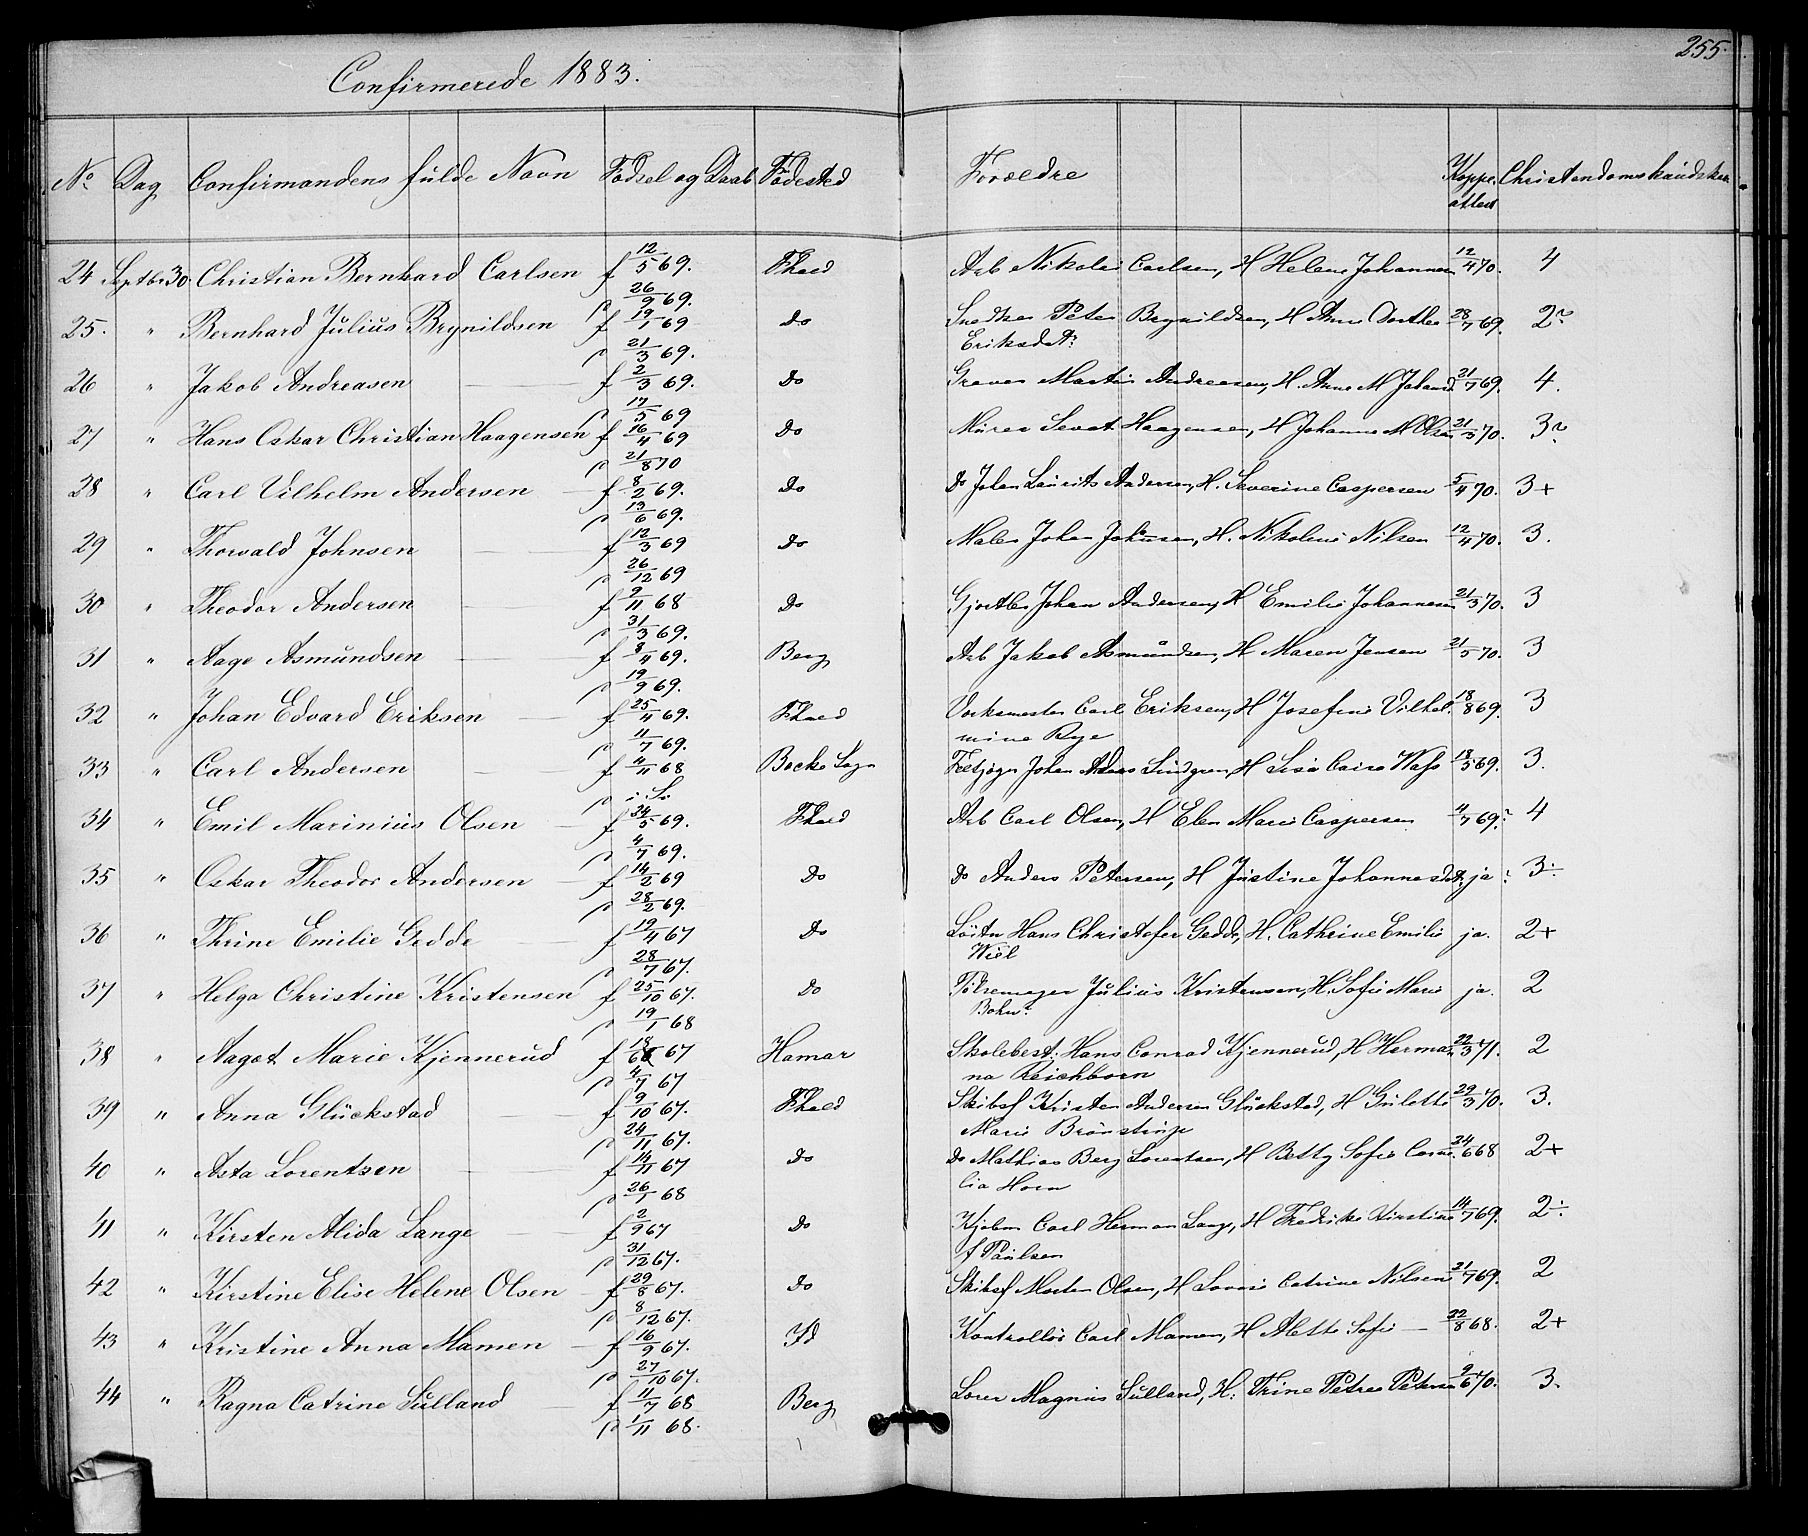 255.
Confirmerede 1883.
No. Dag Confirmandens fulde Navn Fødsel og Daab Fødested Forældre Koppeattest Christendomskundskab
24 Septbr 30. Christian Bernhard Carlsen f 12/5 69. Fhald Arb Nikolai Carlsen, H Helene Johannesen 12/4 70. 4
p 26/9 69.
25. " Bernhard Julius Brynildsen f 19/1 69 Do Snedker Peter Brynildsen, H Anne Dorthea 28/7 69. 2
p 21/3 69. Eriksdtr
26 " Jakob Andreasen f 2/3 69. Do Graver Martin Andreasen, H. Anne M Johansd 21/7 69. 4.
p 17/5 69
27 " Hans Oskar Christian Haagensen f 16/4 69 Do Murer Haagensen, H Johanne M Olsen 21/3 70. 3
p 21/8 70
28 " Carl Vilhelm Andersen f 8/2 69. Do Do Johan Laurits Andersen, H. Severine Caspersen 5/4 70. 3+
p 13/6 69.
29 " Thorvald Johnsen f 12/3 69 Do Maler Johan Johnsen, H. Nikoline Nilsen 12/4 70. 3.
p 26/12 69
30 " Theodor Andersen f 9/11 68 Do Gjørtler Johan Andersen, H Emilie Johannesen 21/3 70. 3
p 31/3 69.
31 " Aage Asmundsen f 8/4 69. Berg Arb Jakob Asmundsen, H Maren Jensen 21/5 70. 3
p 19/9 69.
32 " Johan Edvard Eriksen f 25/4 69. Fhald Verksmester Carl Eriksen, H Josefine Vilhel 18/8 69. 3
p 11/7 69. mine Rye
33 " Carl Andersen f 4/11 68 Backe Sogn Johan Anders Lindgren, H Lisa Caisa 18/5 69. 3.
p i. Sv
34 " Emil Marinius Olsen f 24/5 69. Fhald Arb Carl Olsen, H Elen Marie Caspersen 4/7 69. 4
p 4/7 69.
35 " Oskar Theodor Andersen f 14/2 69 Do Do Anders Petersen, H Justine Johannesdtr ja 3÷
p 28/2 69.
36 " Thrine Emilie Gedde f 19/4 67 Do Løitn Hans Christofer Gedde, H. Cathrine Emilie ja. 2+
p 28/7 67. Wiel
37 " Helga Christine Kristensen f 25/10 67. Do Pølsemager Julius Kristensen, H. Sofie Marie ja. 2
p 19/1 68 Bohn
38 " Aagot Marie Kjennerud f 18/6 67 Hamar Skolebest. Hans Conrad Kjennerud, H Herma 22/3 71. 2
p 4/7 67 na Reichborn
39 " Anna Glückstad f 9/10 67. Fhald Skibsf Kristen Andersen Glückstad, H Gulette 29/3 70. 3.
p 24/11 67. Marie
40 " Asta Lorentzen f 14/11 67 Do Do Mathias Berg Lorentzen, H Betty Sofie Corne 24/6 68 2+
p 26/1 68 lia Horn
41 " Kirsten Alida Lange f 2/9 67 Do Kjøbm Carl Herman Lange, H Fredrike Kirstine 14/7 69. 2÷
p 31/12 67. f Paulsen
42 " Kirstine Elise Helene Olsen f 29/8 67. Do Skibsf Morten Olsen, H Lovise Catrine Nilsen 21/7 69. 2
p 8/12 67.
43 " Kristine Anna Mamen f 16/9 67. Id Kontrollør Carl Mamen, H Mette Sofie 22/8 68. 2+
p 27/10 67.
44 " Ragna Catrine Sulland f 11/7 68 Berg Magnus Sulland, H. Trine Petrea Petersen 9/6 70. 3.
p 1/11 68.